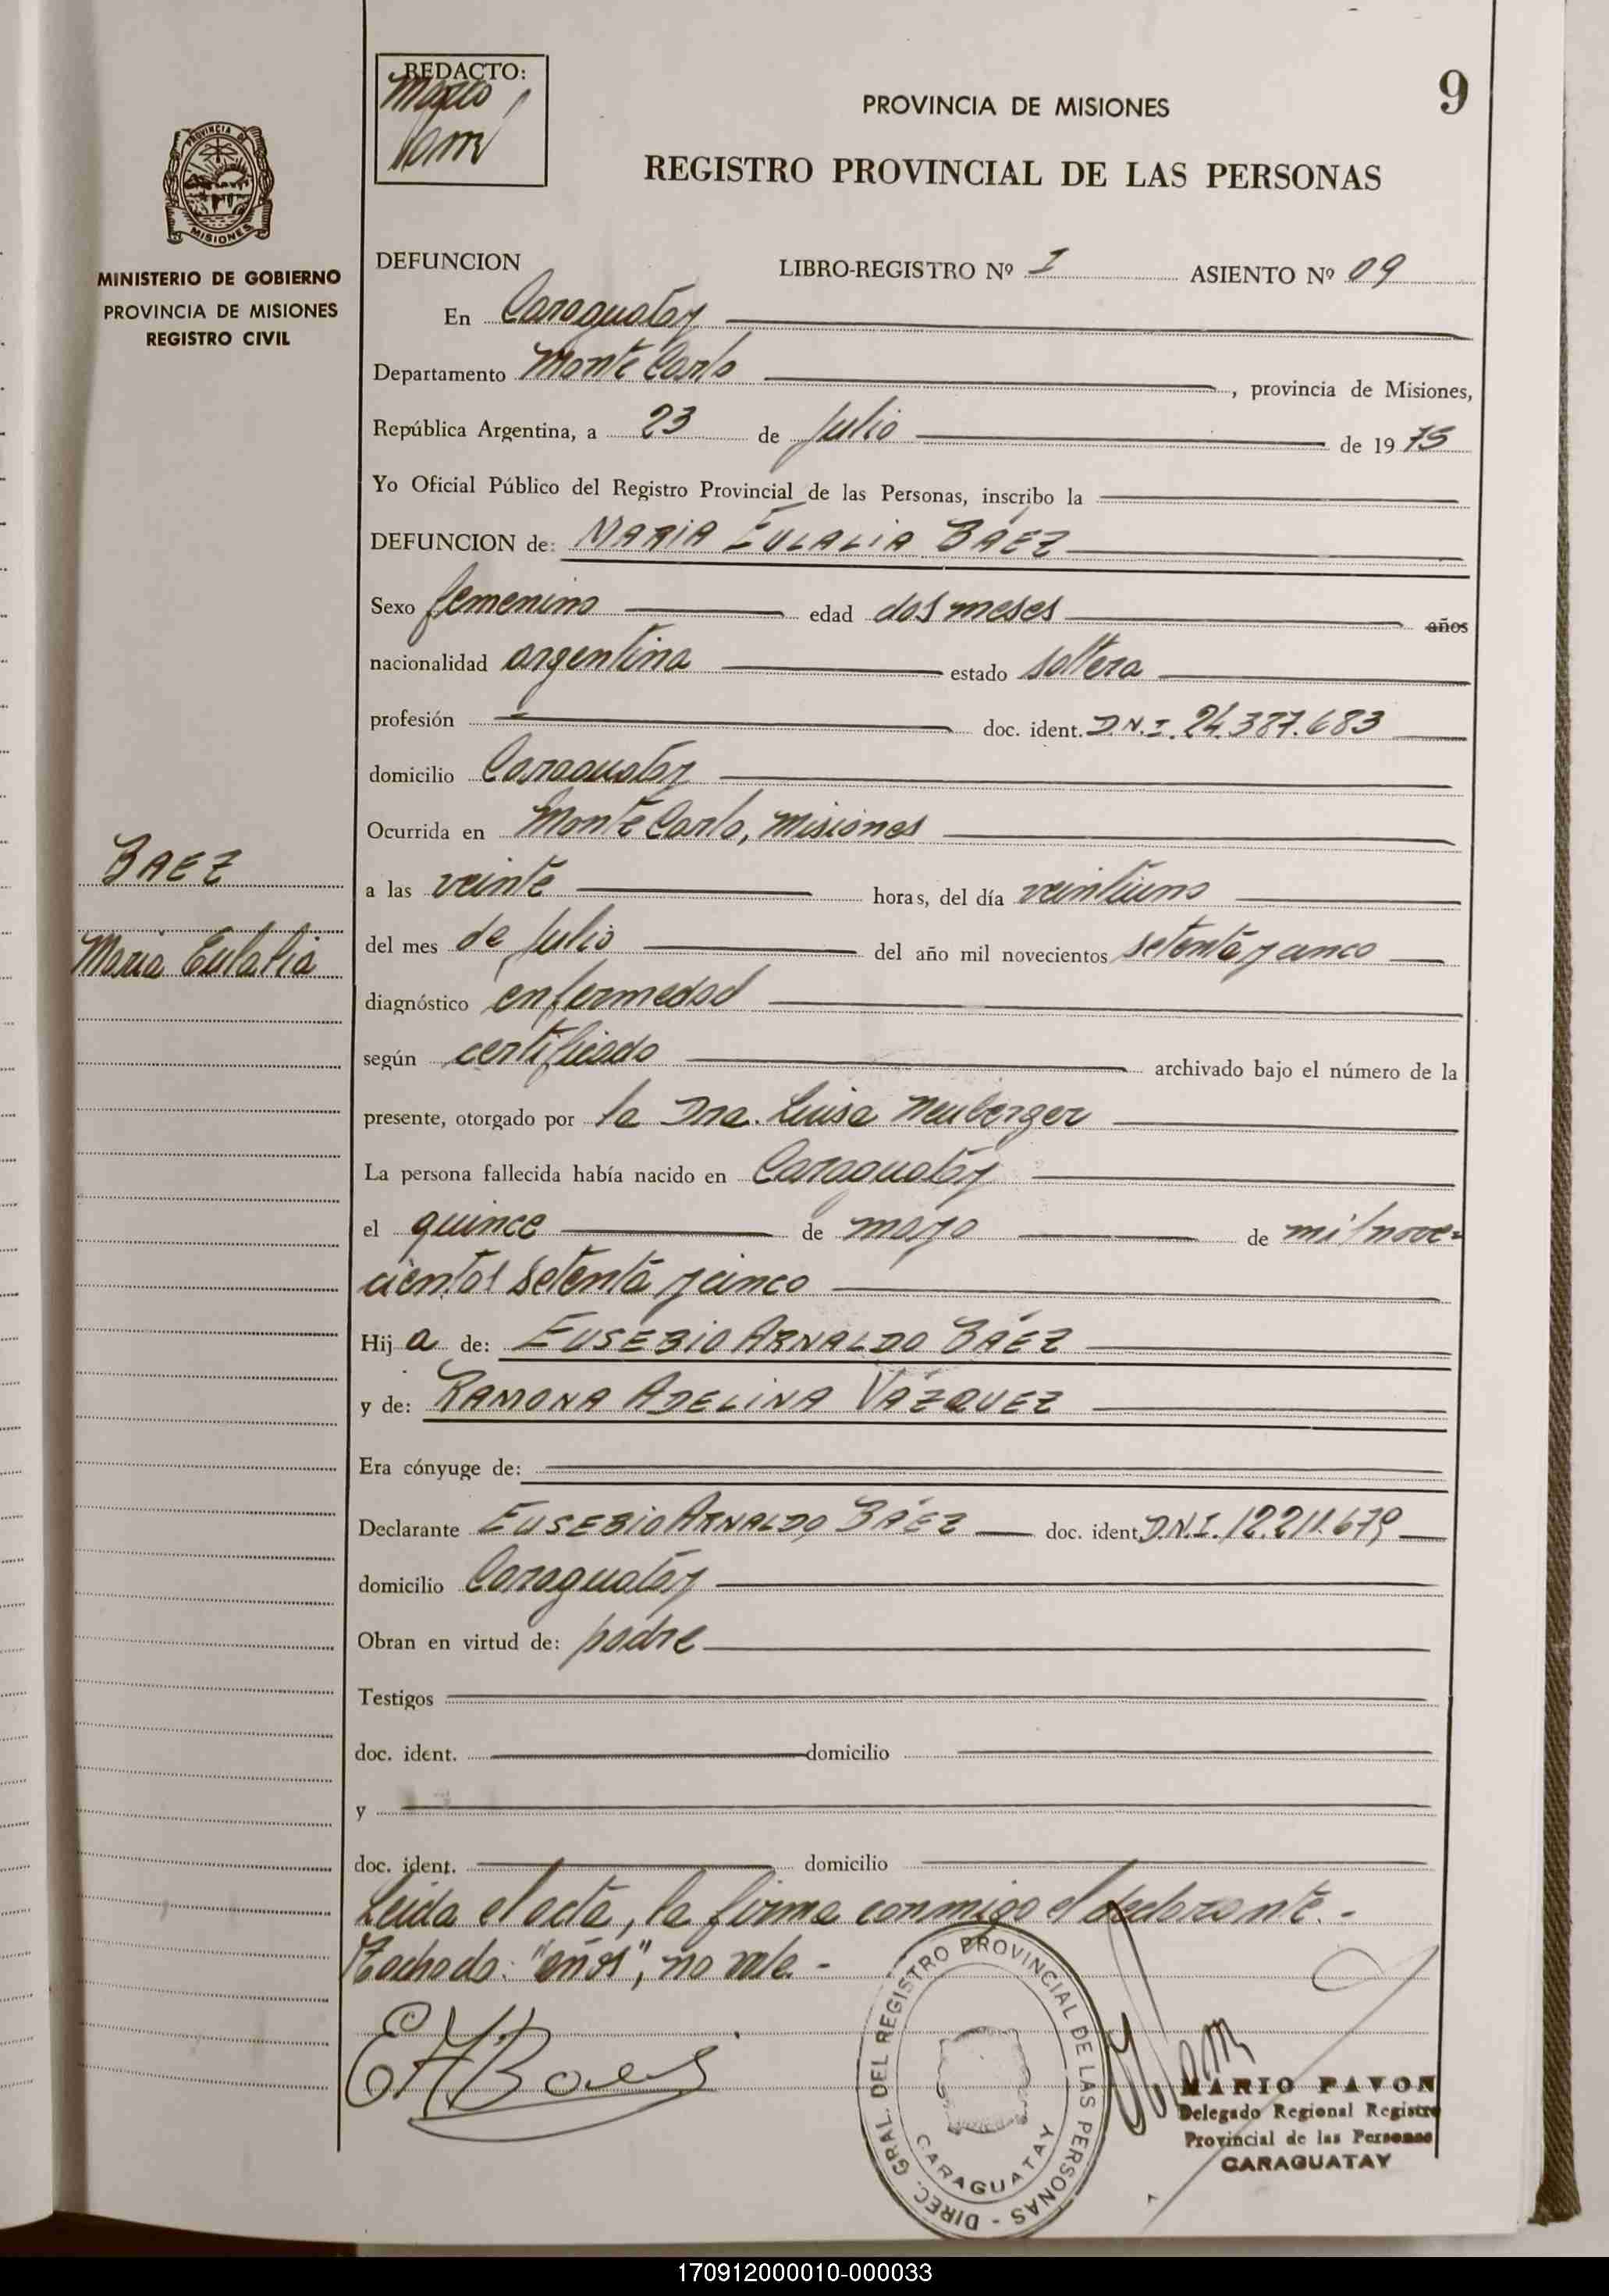 REDACTO:
PROVINCIA DE MISIONES
9
REGISTRO PROVINCIAL DE LAS PERSONAS
PROVINCIA DE
MISIONES
MINISTERIO DE GOBIERNO
PROVINCIA DE MISIONES
REGISTRO CIVIL
DEFUNCION LIBRO-REGISTRO Nº I ASIENTO Nº 09
En Caraguatay
Departamento Monte Carlo, provincia de Misiones,
República Argentina, a 23 de Julio de 1975
Yo Oficial Público del Registro Provincial de las Personas, inscribo la
DEFUNCION de: MARIA EULALIA BÁEZ
Sexo femenino edad dos meses años
nacionalidad argentina estado soltera
profesión doc. ident. D.N.I. 24.387.683
domicilio Caraguatay
Ocurrida en Monte Carlo, Misiones
BAEZ
a las veinte horas, del día veintiuno
Maria Eulalia
del mes de Julio del año mil novecientos setenta y cinco
diagnóstico enfermedad
según certificado archivado bajo el número de la
presente, otorgado por la Dra. Luisa Neuberger
La persona fallecida había nacido en Caraguatay
el quince de mayo de mil nove-
cientos setenta y cinco
Hija de: EUSEBIO ARNALDO BÁEZ
y de: RAMONA ADELINA VÁZQUEZ
Era cónyuge de:
Declarante EUSEBIO ARNALDO BÁEZ doc. ident. D.N.I. 12.211.679
domicilio Caraguatay
Obran en virtud de: padre
Testigos
doc. ident. domicilio
y
doc. ident. domicilio
Leida el acta, la firma conmigo el declarante.-
Tachado: "años", no vale.-
EABaez
DIREC. GRAL. DEL REGISTRO PROVINCIAL DE LAS PERSONAS -
CARAGUATAY
MARIO PAVON
Delegado Regional Registro
Provincial de las Personas
CARAGUATAY
170912000010-000033